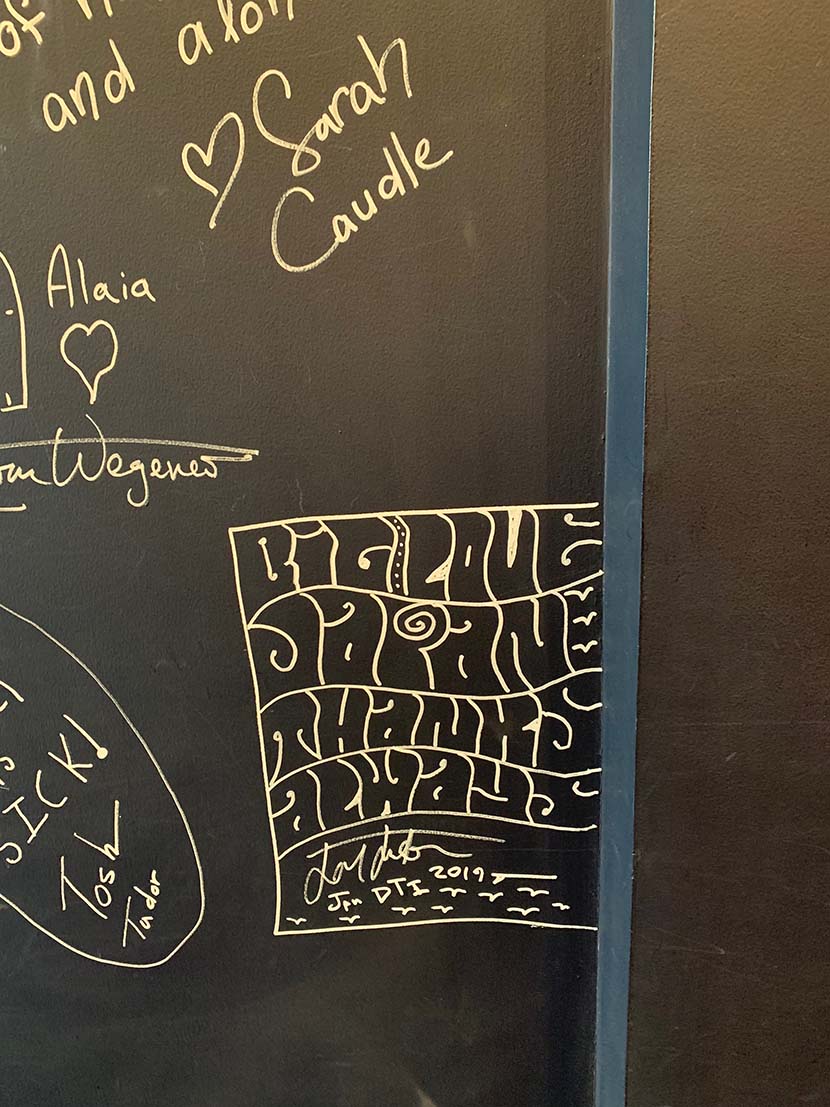 and alon
Sarah
Caudle
Alaia
Wegener
BIG LOVE
JAPAN
THANKS
ALWAYS
2019
Jpn DTI
SICK!
Tosh
Tudor